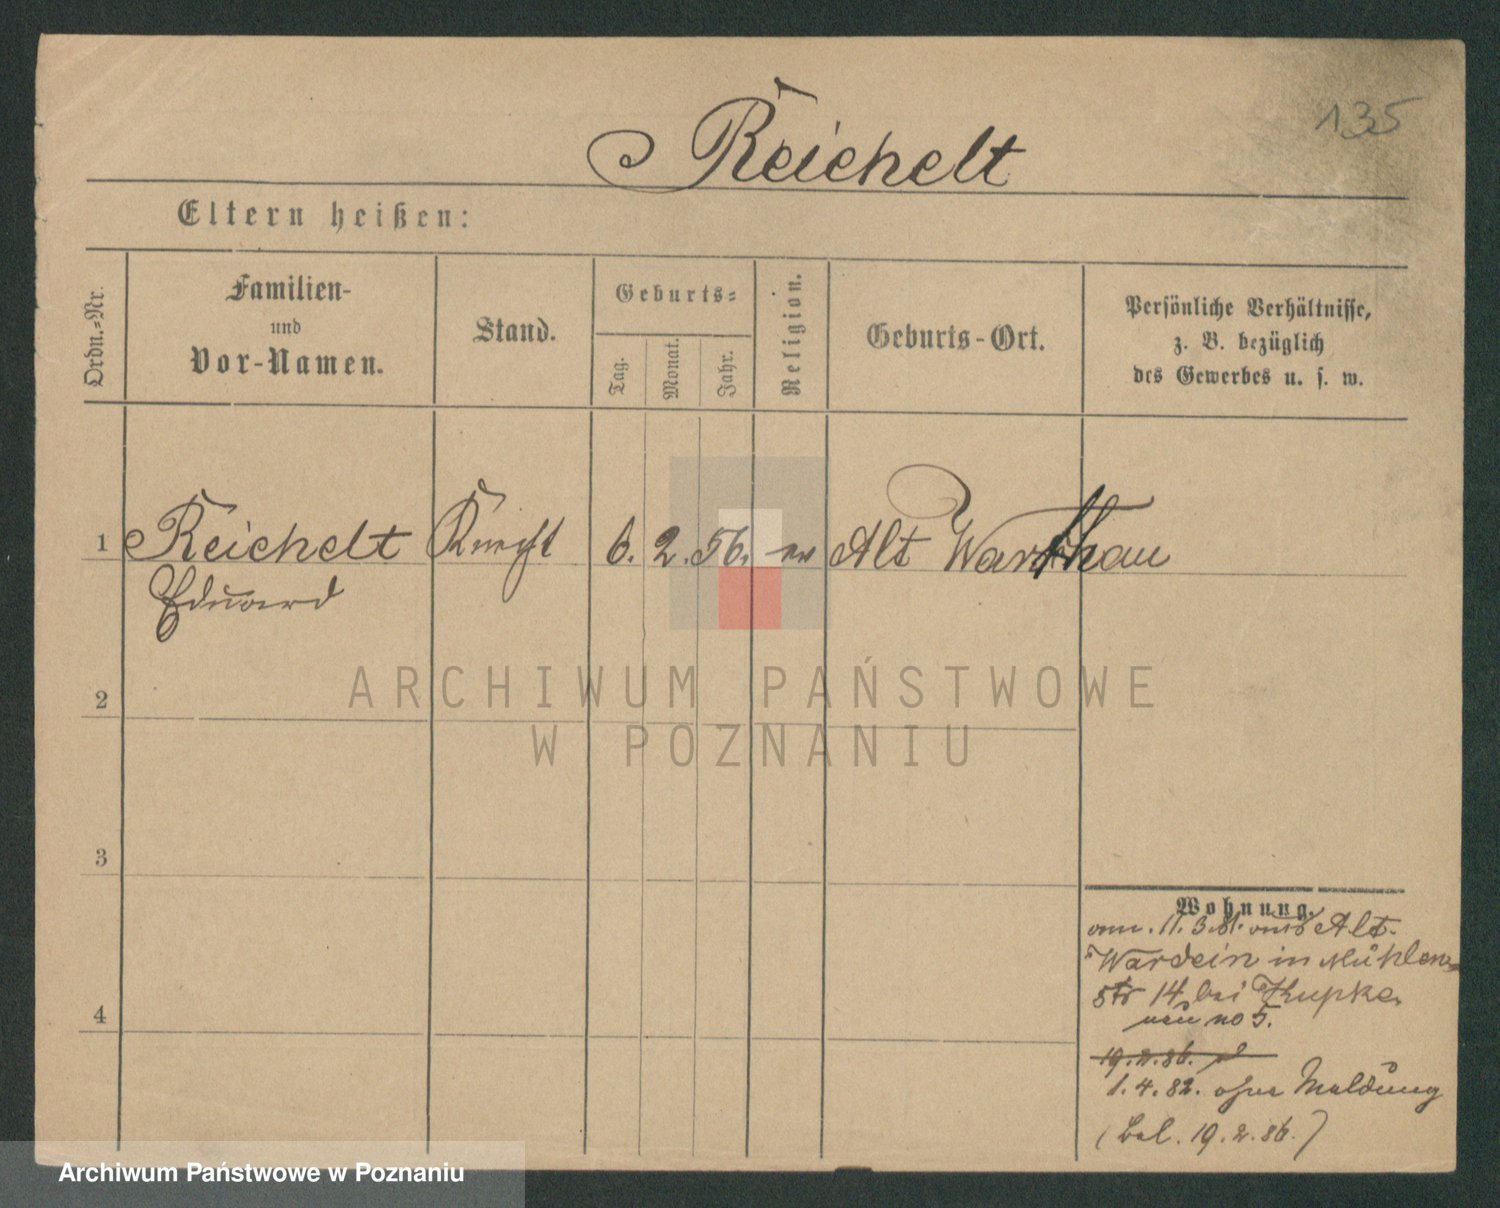 135
Reichelt
Eltern heißen:
Ordn.=Nr.
Familien-
und
Vor-Namen.
Stand.
Geburts=
Tag.
Monat.
Jahr.
Religion.
Geburts-Ort.
Persönliche Verhältnisse,
z. B. bezüglich
des Gewerbes u. s. w.
1 Reichelt Knecht 6. 2. 56. ev Alt Warthau
Eduard
2
ARCHIWUM PAŃSTWOWE
W POZNANIU
3
Wohnung.
11. 3. 81. aus Alt-
Wardein in Mühlen-
str 14 bei Krupke
neu no 5.
4
19.2.86.
1.4.82. ohne Meldung
(bal. 19.2.86.)
Archiwum Państwowe w Poznaniu